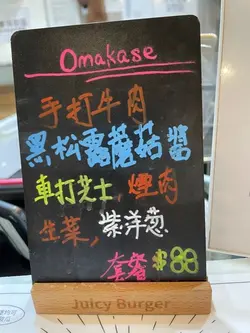 Omakase
手打牛肉
黑松露蘑菇醬
車打芝士, 煙肉
生菜, 紫洋葱
套餐 $88
Juicy Burger